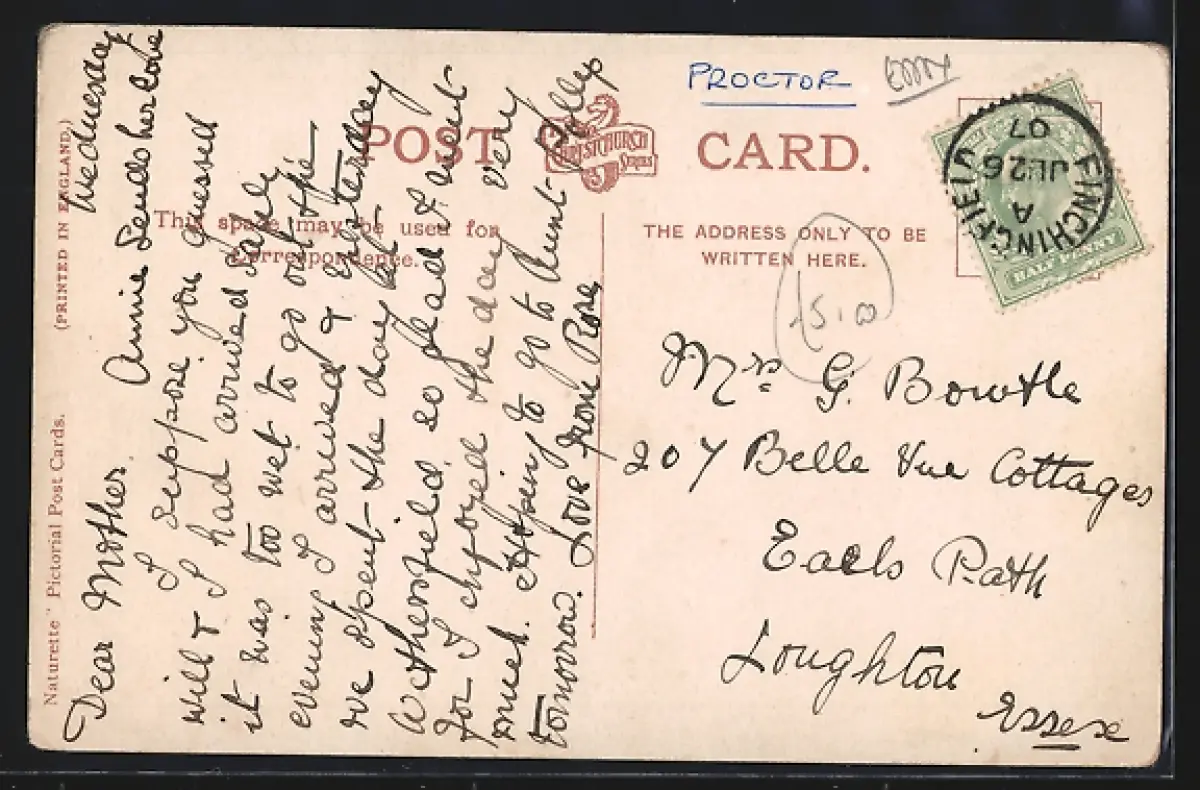 Naturette" Pictorial Post Cards. (PRINTED IN ENGLAND.)
POST CARD.
CHRISTCHURCH
This space may be used for
Correspondence.
THE ADDRESS ONLY TO BE
WRITTEN HERE.
PROCTOR
Essex
15.00
FINCHINGFIELD
A
JU 26
07
HALF PENNY
Wednesday
Annie sends her love
Dear Mother.
I suppose you guessed
will & I had arrived safely
it was too wet to go out the
evening I arrived & yesterday
we spent the day at
Wethersfield so glad I went
for I enjoyed the day very
much. Hoping to go to Aunt Polly
tomorrow. Love from Rose
Mrs G. Bowtle
207 Belle Vue Cottages
Earls Path
Loughton
Essex